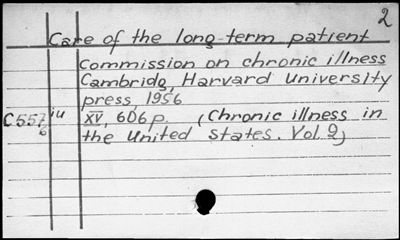 2
Care of the long-term patient
Commission on chronic illness
Cambridg, Harvard University
press, 1956
C557iu XV, 606p. (Chronic illness in
6 the United States. Vol. 2)